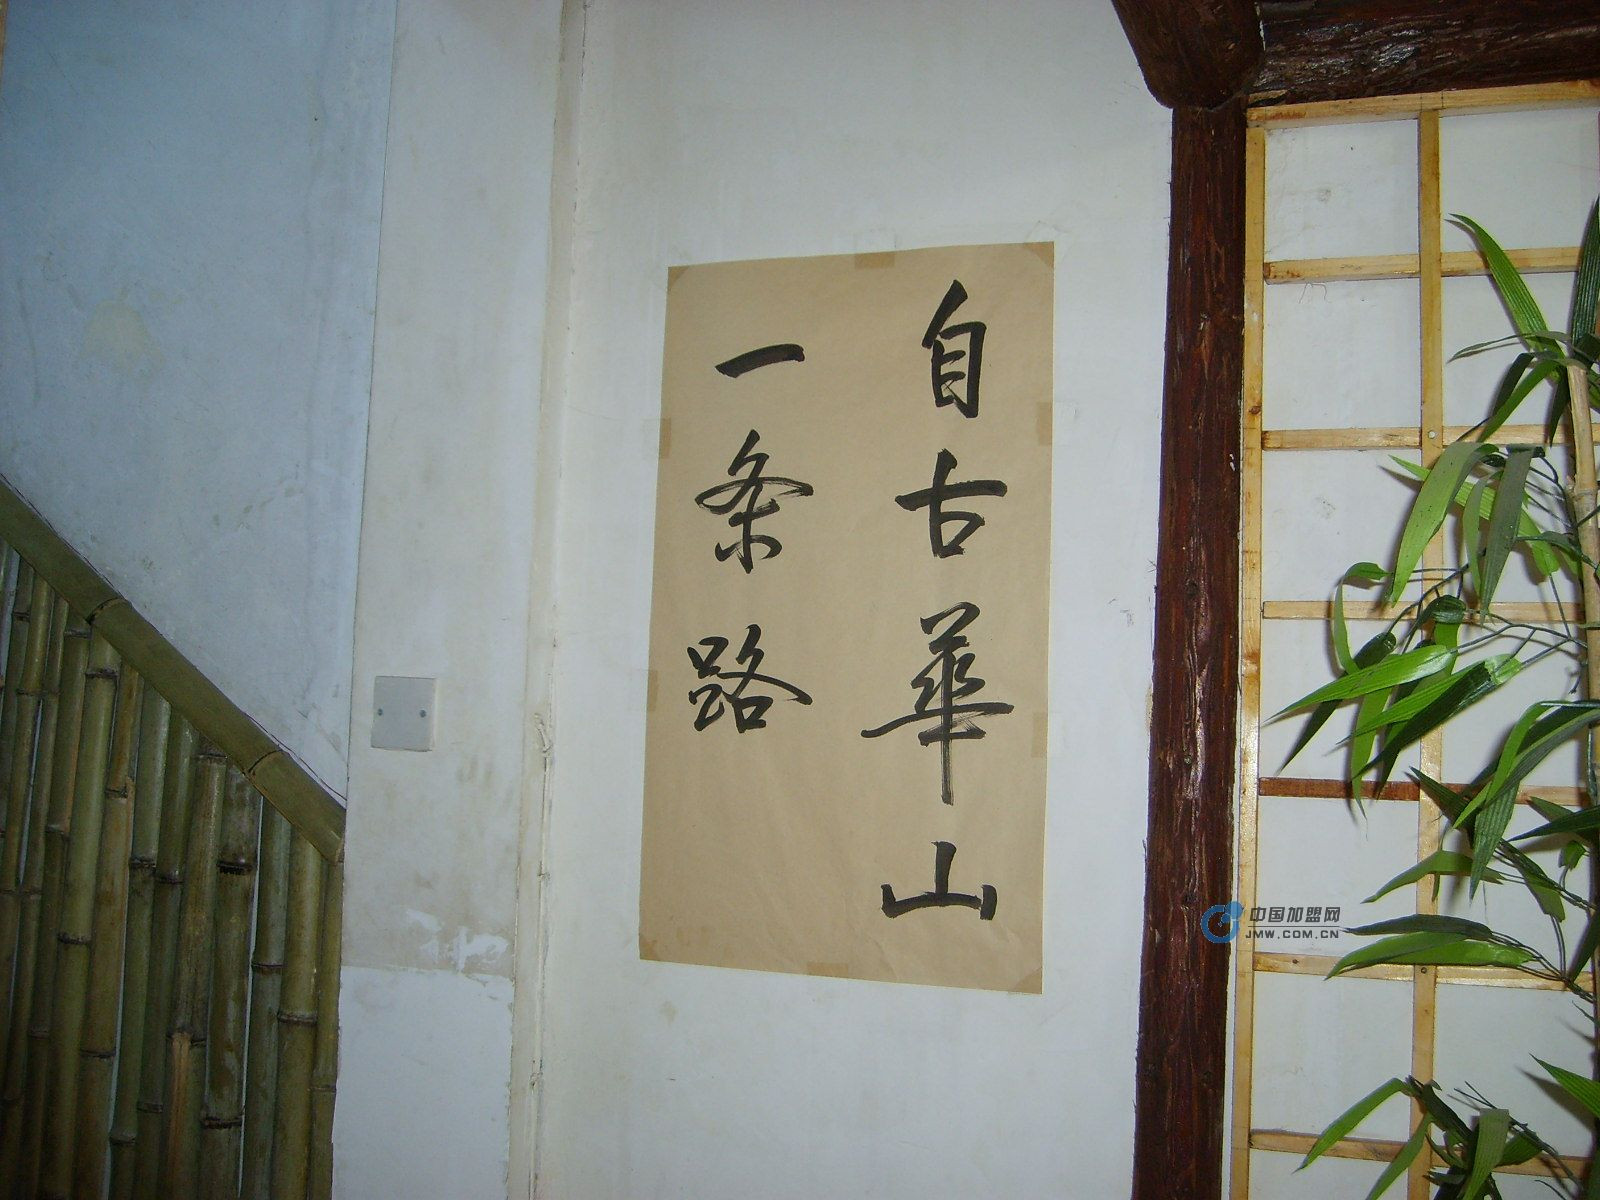 自古華山
一条路
中国加盟网
JMW.COM.CN